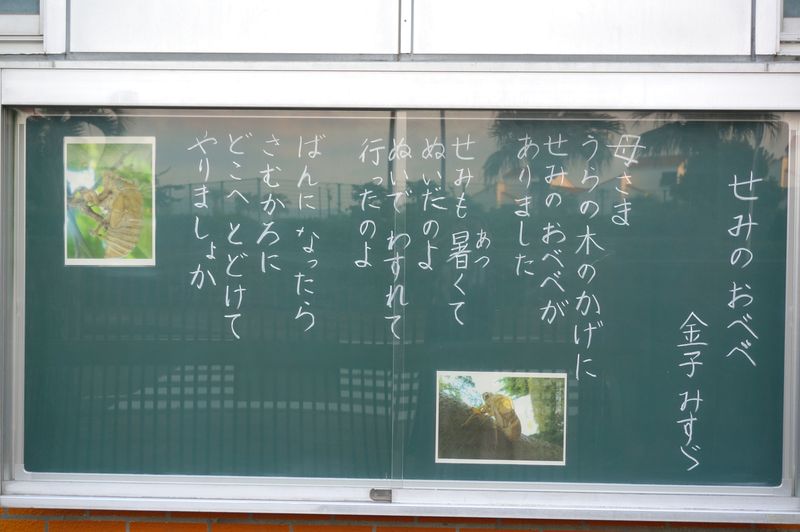 せみのおべべ
金子 みすゞ
母さま
うらの木のかげに
せみのおべべが
ありました
せみも暑くて
あつ
ぬいだのよ
ぬいで わすれて
行ったのよ
ばんになったら
さむかろに
どこへ とどけて
やりましょか